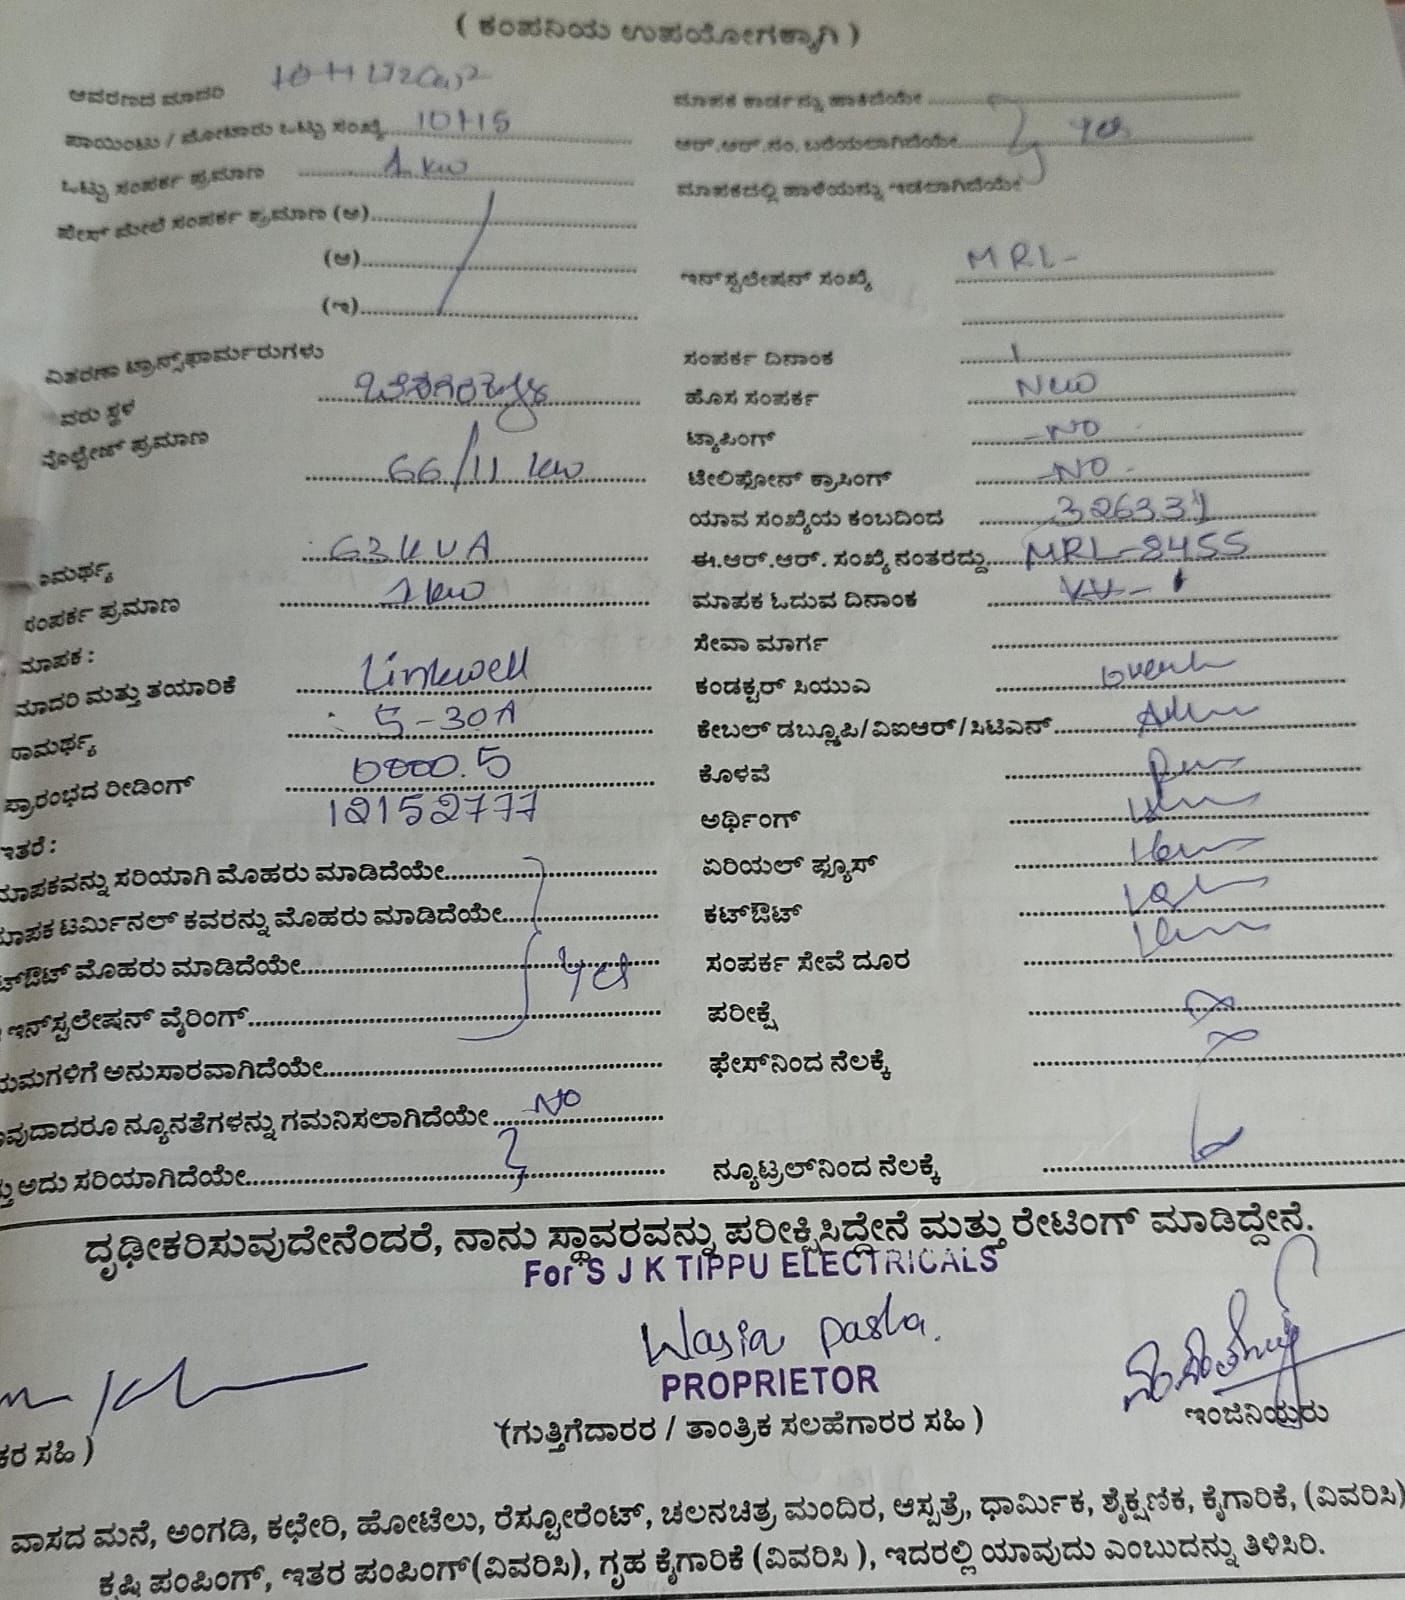 ( ಕಂಪನಿಯ ಉಪಯೋಗಕ್ಕಾಗಿ )
ಆವರಣದ ಮಾದರಿ
ಪಾಯಿಂಟು / ಮೋಟಾರು ಒಟ್ಟು ಸಂಖ್ಯೆ 10+15
ಒಟ್ಟು ಸಂಪರ್ಕ ಪ್ರಮಾಣ 1 kw
ಫೇಸ್ ಮೇಲೆ ಸಂಪರ್ಕ ಪ್ರಮಾಣ (ಅ)
(ಆ)
(ಇ)
ವಿತರಣಾ ಟ್ರಾನ್ಸ್‌ಫಾರ್ಮರುಗಳು
ವರು ಸ್ಥಳ
ವೊಲ್ಟೇಜ್ ಪ್ರಮಾಣ 66/11 kw
ಾಮರ್ಥ್ಯ 63 KVA
ಸಂಪರ್ಕ ಪ್ರಮಾಣ 1 kw
ಮಾಪಕ :
ಮಾದರಿ ಮತ್ತು ತಯಾರಿಕೆ Linkwell
ಸಾಮರ್ಥ್ಯ 5-30A
ಪ್ರಾರಂಭದ ರೀಡಿಂಗ್ 0000.5
12152777
ಇತರೆ :
ಮಾಪಕವನ್ನು ಸರಿಯಾಗಿ ಮೊಹರು ಮಾಡಿದೆಯೇ
ಮಾಪಕ ಟರ್ಮಿನಲ್ ಕವರನ್ನು ಮೊಹರು ಮಾಡಿದೆಯೇ
ಟ್‌ಔಟ್ ಮೊಹರು ಮಾಡಿದೆಯೇ Yes
ಇನ್‌ಸ್ಟಲೇಷನ್ ವೈರಿಂಗ್
ಯಮಗಳಿಗೆ ಅನುಸಾರವಾಗಿದೆಯೇ
ಾವುದಾದರೂ ನ್ಯೂನತೆಗಳನ್ನು ಗಮನಿಸಲಾಗಿದೆಯೇ NO
ತ್ತು ಅದು ಸರಿಯಾಗಿದೆಯೇ
ಮಾಪಕ ಕಾರ್ಡನ್ನು ಹಾಕಿದೆಯೇ
ಆರ್.ಆರ್.ನಂ. ಬರೆಯಲಾಗಿದೆಯೇ Yes
ಮಾಪಕದಲ್ಲಿ ಹಾಳೆಯನ್ನು ಇಡಲಾಗಿದೆಯೇ
ಇನ್‌ಸ್ಟಲೇಷನ್ ಸಂಖ್ಯೆ MRL-
ಸಂಪರ್ಕ ದಿನಾಂಕ
ಹೊಸ ಸಂಪರ್ಕ New
ಟ್ಯಾಪಿಂಗ್ -NO
ಟೇಲಿಫೋನ್ ಕ್ರಾಸಿಂಗ್ -NO-
ಯಾವ ಸಂಖ್ಯೆಯ ಕಂಬದಿಂದ 326331
ಈ.ಆರ್.ಆರ್. ಸಂಖ್ಯೆ ನಂತರದ್ದು MRL-8455
ಮಾಪಕ ಓದುವ ದಿನಾಂಕ
ಸೇವಾ ಮಾರ್ಗ
ಕಂಡಕ್ಟರ್ ಸಿಯುಎ
ಕೇಬಲ್ ಡಬ್ಲ್ಯೂಪಿ/ವಿಐಆರ್/ಸಿಟಿಎನ್
ಕೊಳವೆ
ಅರ್ಥಿಂಗ್
ಏರಿಯಲ್ ಫ್ಯೂಸ್
ಕಟ್‌ಔಟ್
ಸಂಪರ್ಕ ಸೇವೆ ದೂರ
ಪರೀಕ್ಷೆ
ಫೇಸ್‌ನಿಂದ ನೆಲಕ್ಕೆ
ನ್ಯೂಟ್ರಲ್‌ನಿಂದ ನೆಲಕ್ಕೆ
ದೃಢೀಕರಿಸುವುದೇನೆಂದರೆ, ನಾನು ಸ್ಥಾವರವನ್ನು ಪರೀಕ್ಷಿಸಿದ್ದೇನೆ ಮತ್ತು ರೇಟಿಂಗ್ ಮಾಡಿದ್ದೇನೆ.
For S J K TIPPU ELECTRICALS
Wasia Pasha.
PROPRIETOR
ಕರ ಸಹಿ )
(ಗುತ್ತಿಗೆದಾರರ / ತಾಂತ್ರಿಕ ಸಲಹೆಗಾರರ ಸಹಿ )
ಇಂಜಿನಿಯರು
ವಾಸದ ಮನೆ, ಅಂಗಡಿ, ಕಛೇರಿ, ಹೋಟೆಲು, ರೆಸ್ಟೋರೆಂಟ್, ಚಲನಚಿತ್ರ ಮಂದಿರ, ಆಸ್ಪತ್ರೆ, ಧಾರ್ಮಿಕ, ಶೈಕ್ಷಣಿಕ, ಕೈಗಾರಿಕೆ, (ವಿವರಿಸಿ)
ಕೃಷಿ ಪಂಪಿಂಗ್, ಇತರ ಪಂಪಿಂಗ್(ವಿವರಿಸಿ), ಗೃಹ ಕೈಗಾರಿಕೆ (ವಿವರಿಸಿ ), ಇದರಲ್ಲಿ ಯಾವುದು ಎಂಬುದನ್ನು ತಿಳಿಸಿರಿ.